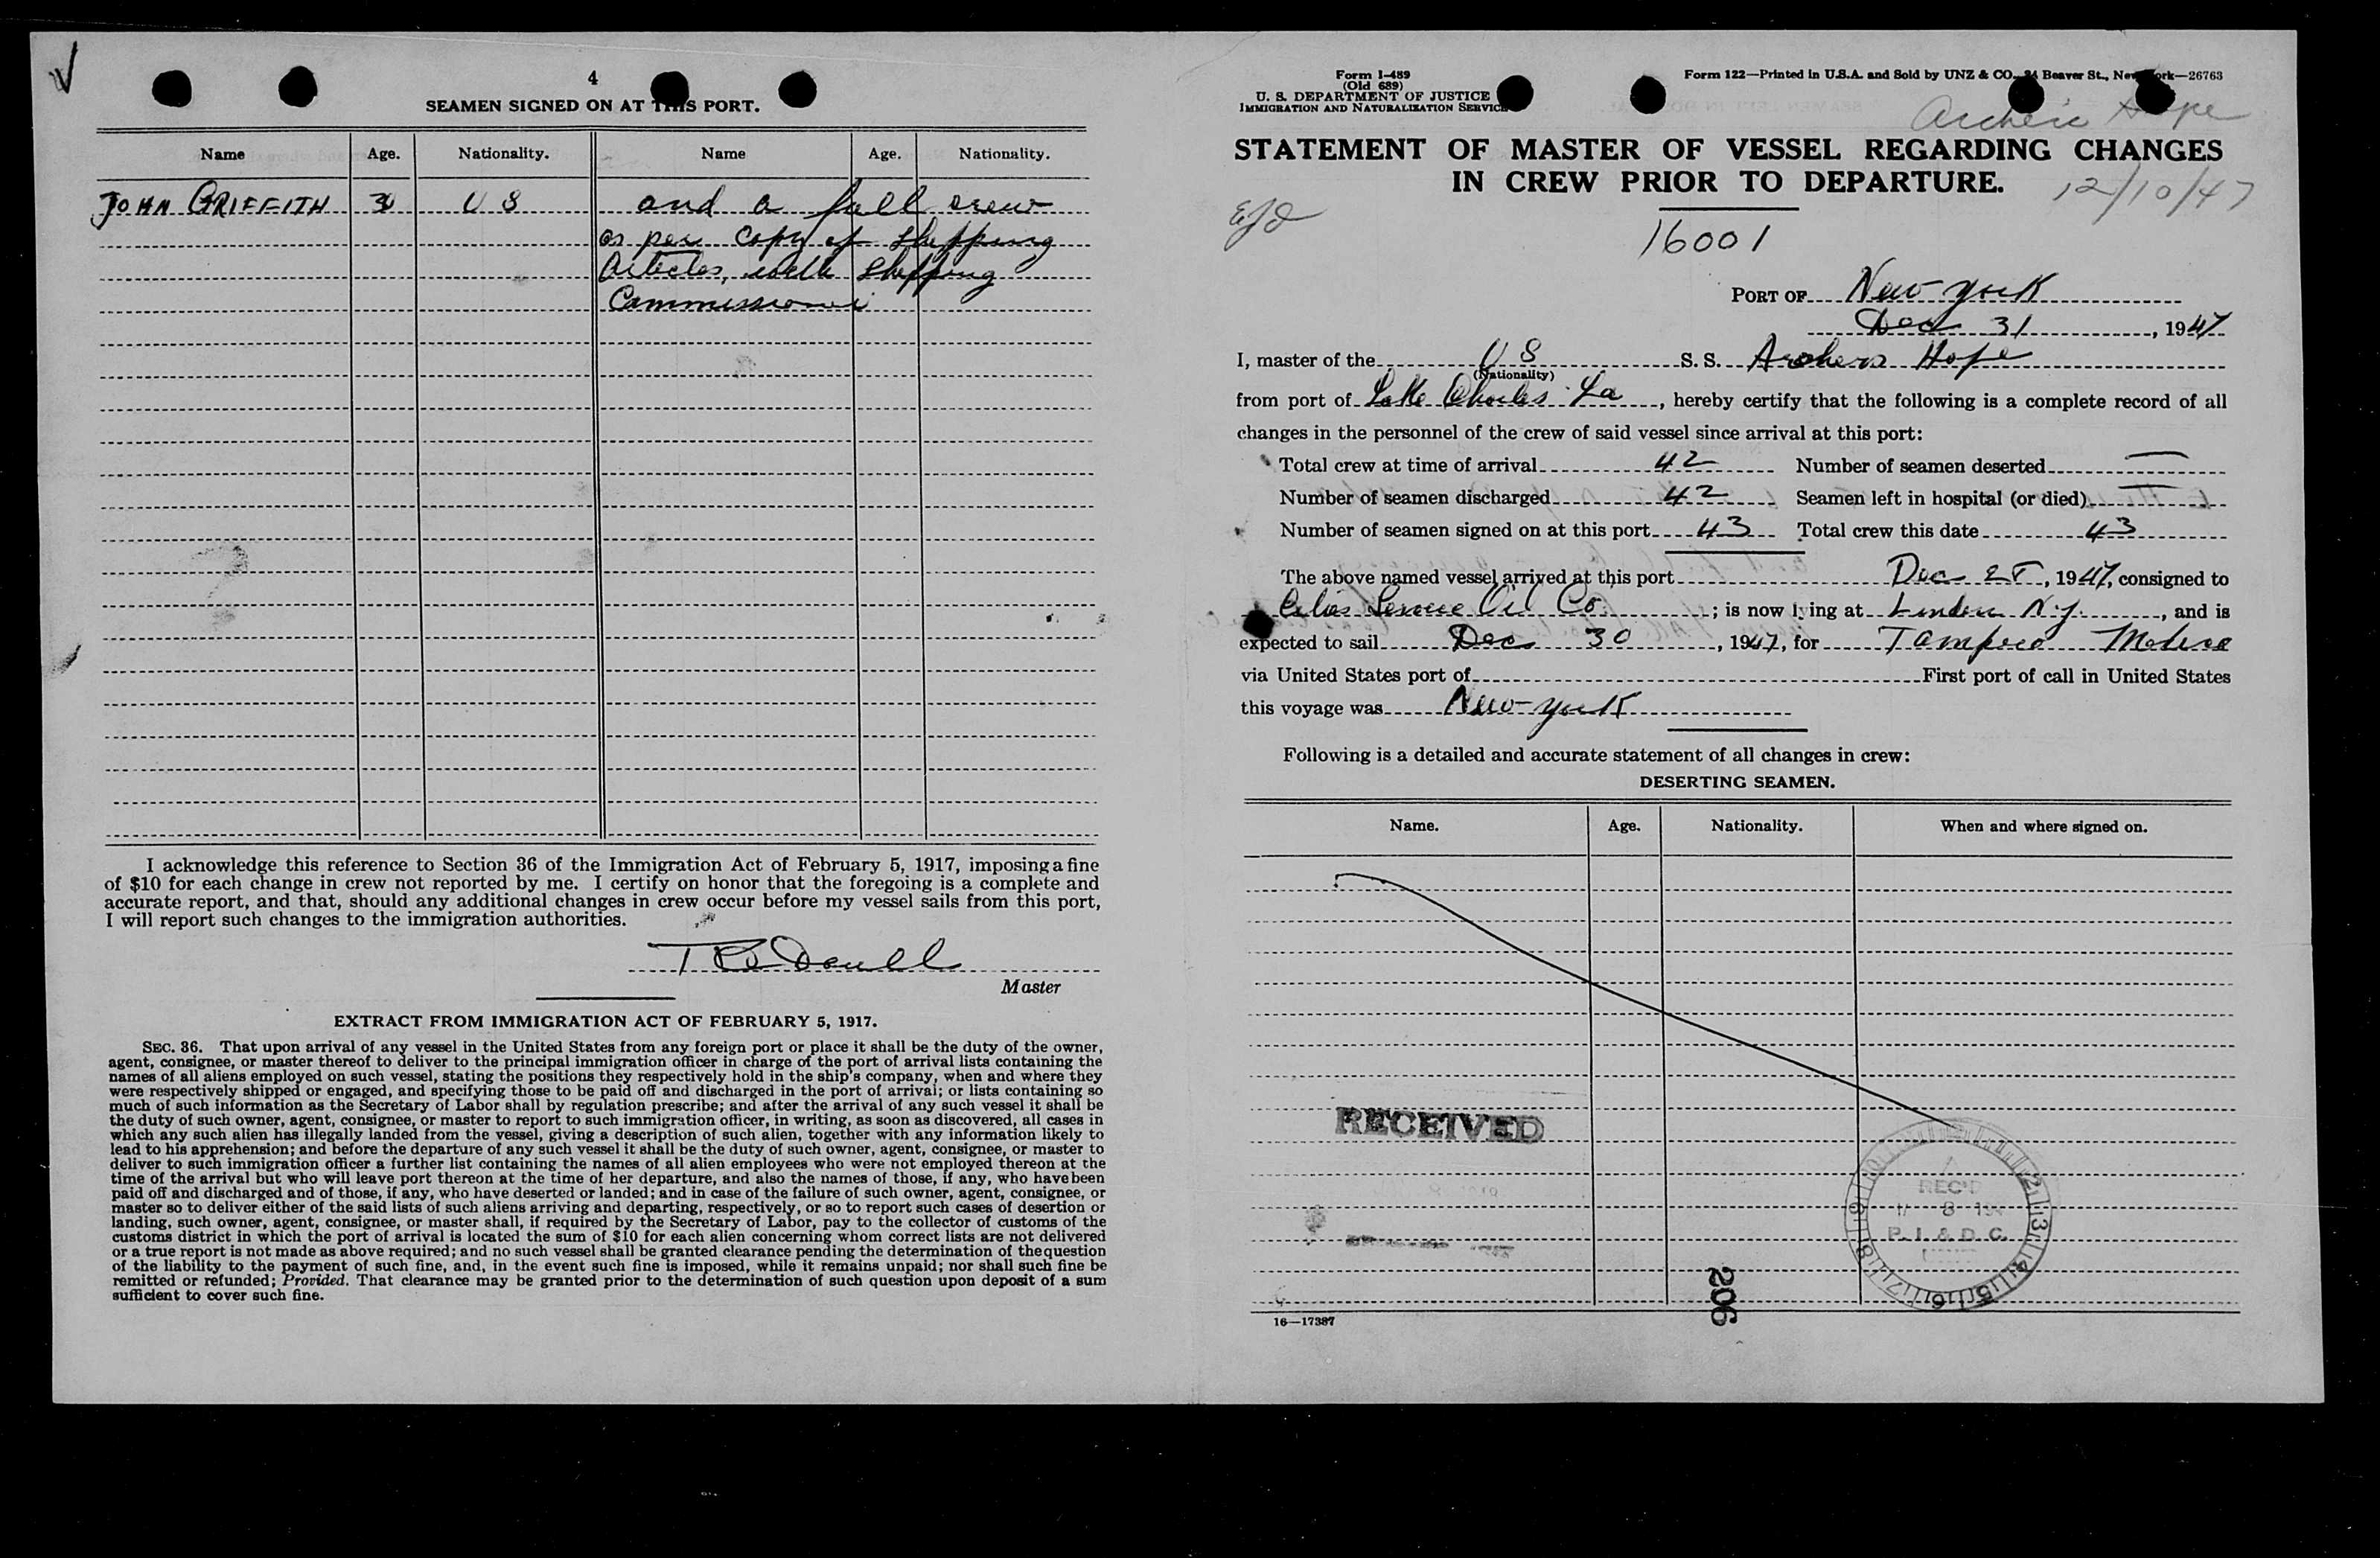 4
SEAMEN SIGNED ON AT THIS PORT.
Name Age. Nationality. Name Age. Nationality.
JOHN GRIFFITH 30 U S and a full crew
as per copy of shipping
Articles, with shipping
Commissioner
I acknowledge this reference to Section 36 of the Immigration Act of February 5, 1917, imposing a fine
of $10 for each change in crew not reported by me. I certify on honor that the foregoing is a complete and
accurate report, and that, should any additional changes in crew occur before my vessel sails from this port,
I will report such changes to the immigration authorities.
Master
EXTRACT FROM IMMIGRATION ACT OF FEBRUARY 5, 1917.
SEC. 36. That upon arrival of any vessel in the United States from any foreign port or place it shall be the duty of the owner,
agent, consignee, or master thereof to deliver to the principal immigration officer in charge of the port of arrival lists containing the
names of all aliens employed on such vessel, stating the positions they respectively hold in the ship's company, when and where they
were respectively shipped or engaged, and specifying those to be paid off and discharged in the port of arrival; or lists containing so
much of such information as the Secretary of Labor shall by regulation prescribe; and after the arrival of any such vessel it shall be
the duty of such owner, agent, consignee, or master to report to such immigration officer, in writing, as soon as discovered, all cases in
which any such alien has illegally landed from the vessel, giving a description of such alien, together with any information likely to
lead to his apprehension; and before the departure of any such vessel it shall be the duty of such owner, agent, consignee, or master to
deliver to such immigration officer a further list containing the names of all alien employees who were not employed thereon at the
time of the arrival but who will leave port thereon at the time of her departure, and also the names of those, if any, who have been
paid off and discharged and of those, if any, who have deserted or landed; and in case of the failure of such owner, agent, consignee, or
master so to deliver either of the said lists of such aliens arriving and departing, respectively, or so to report such cases of desertion or
landing, such owner, agent, consignee, or master shall, if required by the Secretary of Labor, pay to the collector of customs of the
customs district in which the port of arrival is located the sum of $10 for each alien concerning whom correct lists are not delivered
or a true report is not made as above required; and no such vessel shall be granted clearance pending the determination of the question
of the liability to the payment of such fine, and, in the event such fine is imposed, while it remains unpaid; nor shall such fine be
remitted or refunded; Provided. That clearance may be granted prior to the determination of such question upon deposit of a sum
sufficient to cover such fine.
Form I-489
(Old 689)
U. S. DEPARTMENT OF JUSTICE
IMMIGRATION AND NATURALIZATION SERVICE
Form 122—Printed in U.S.A. and Sold by UNZ & CO., 24 Beaver St., New York—26763
Hope
STATEMENT OF MASTER OF VESSEL REGARDING CHANGES
IN CREW PRIOR TO DEPARTURE.
12/10/47
16001
PORT OF New York
Dec 31, 1947
I, master of the U S S. S. Archers Hope
(Nationality)
from port of Lake Charles La, hereby certify that the following is a complete record of all
changes in the personnel of the crew of said vessel since arrival at this port:
Total crew at time of arrival 42 Number of seamen deserted —
Number of seamen discharged 42 Seamen left in hospital (or died) —
Number of seamen signed on at this port 43 Total crew this date 43
The above named vessel arrived at this port Dec , 1947, consigned to
Cities Service Oil Co.; is now lying at Linden N.J., and is
expected to sail Dec 30, 1947, for Tampico Mexico
via United States port of First port of call in United States
this voyage was New York
Following is a detailed and accurate statement of all changes in crew:
DESERTING SEAMEN.
Name. Age. Nationality. When and where signed on.
RECEIVED
REC'D
P. I. & D. C.
206
16—17387